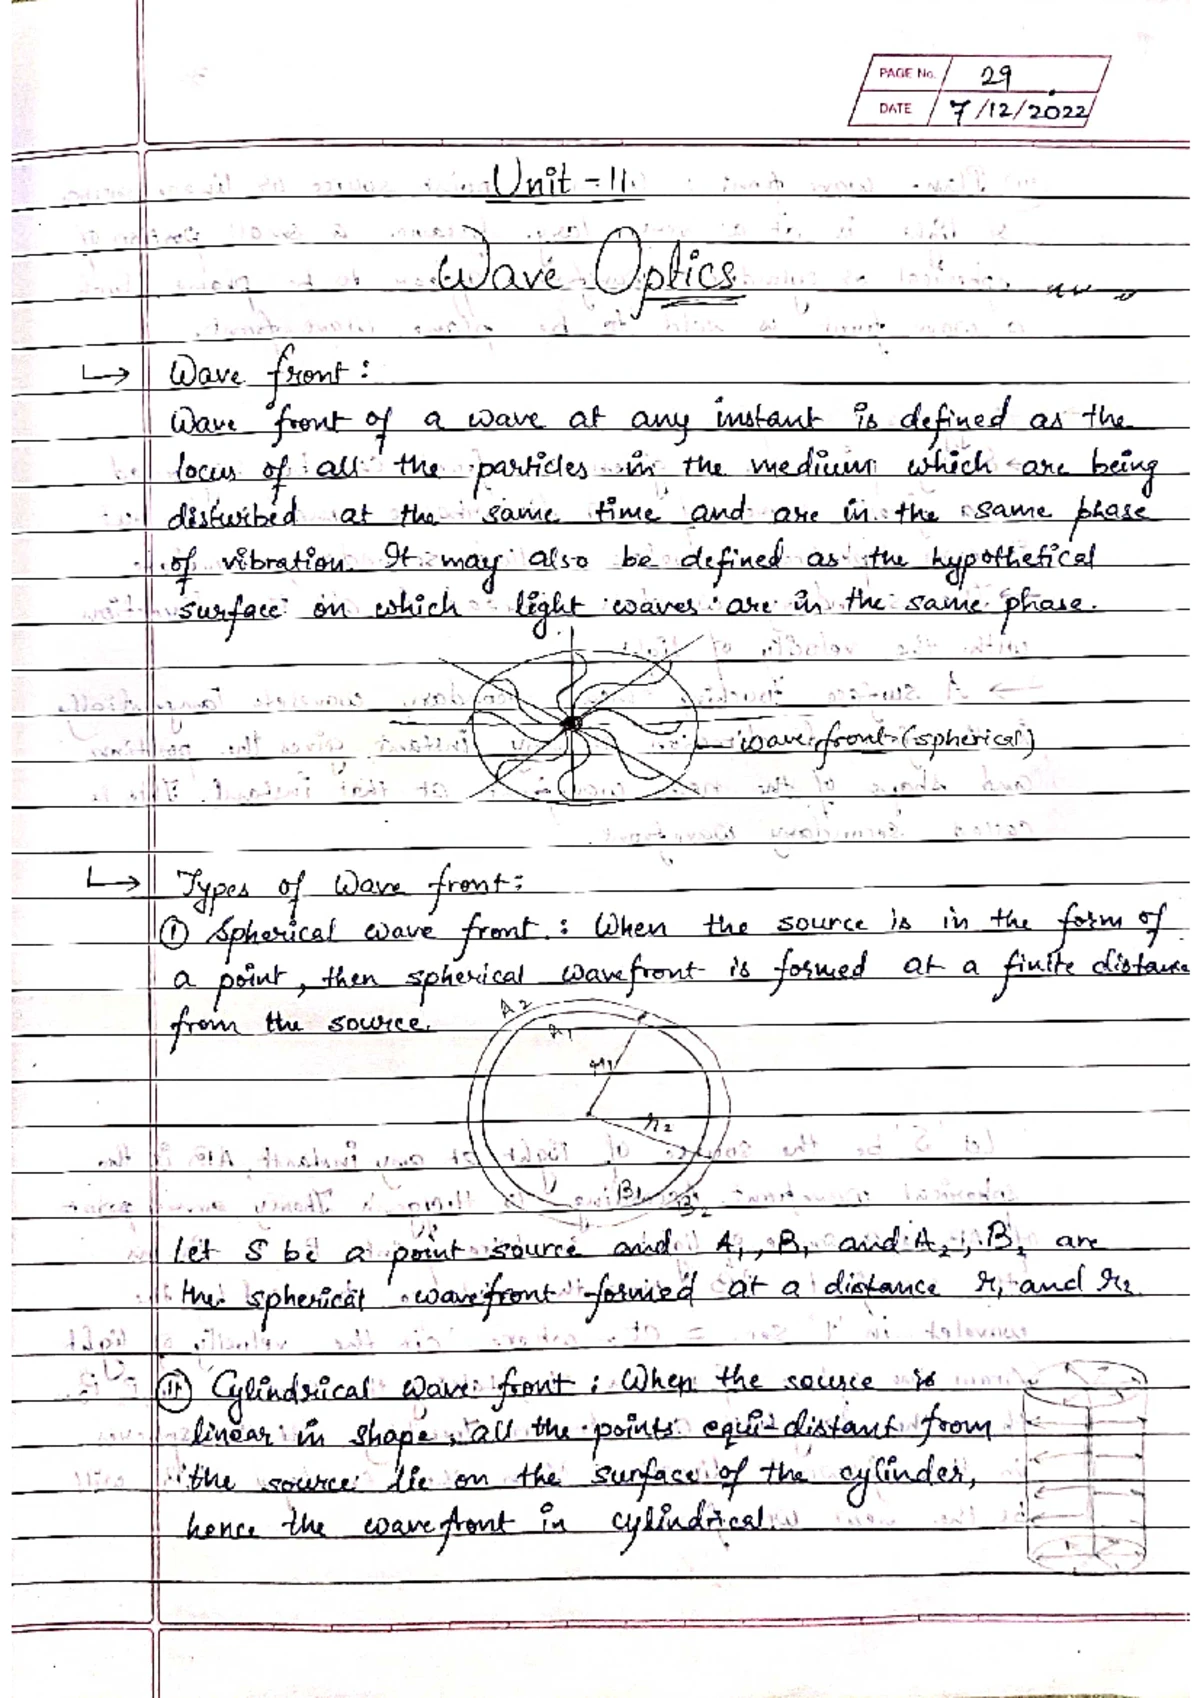 PAGE No. 29
DATE 7/12/2022
Unit - II
Wave Optics
↳ Wave front :
Wave front of a wave at any instant is defined as the
locus of all the particles in the medium which are being
disturbed at the same time and are in the same phase
of vibration. It may also be defined as the hypothetical
surface on which light waves are in the same phase.
wavefront (spherical)
↳ Types of Wave front :
① Spherical wave front : When the source is in the form of
a point, then spherical wavefront is formed at a finite distance
from the source.
A2
A1
r1
r2
B1
B2
Let S be a point source and A1, B1 and A2, B2 are
the spherical wavefront formed at a distance r1 and r2
(II) Cylindrical wave front : When the source is
linear in shape, all the points equi-distant from
the source lie on the surface of the cylinder,
hence the wavefront in cylindrical.